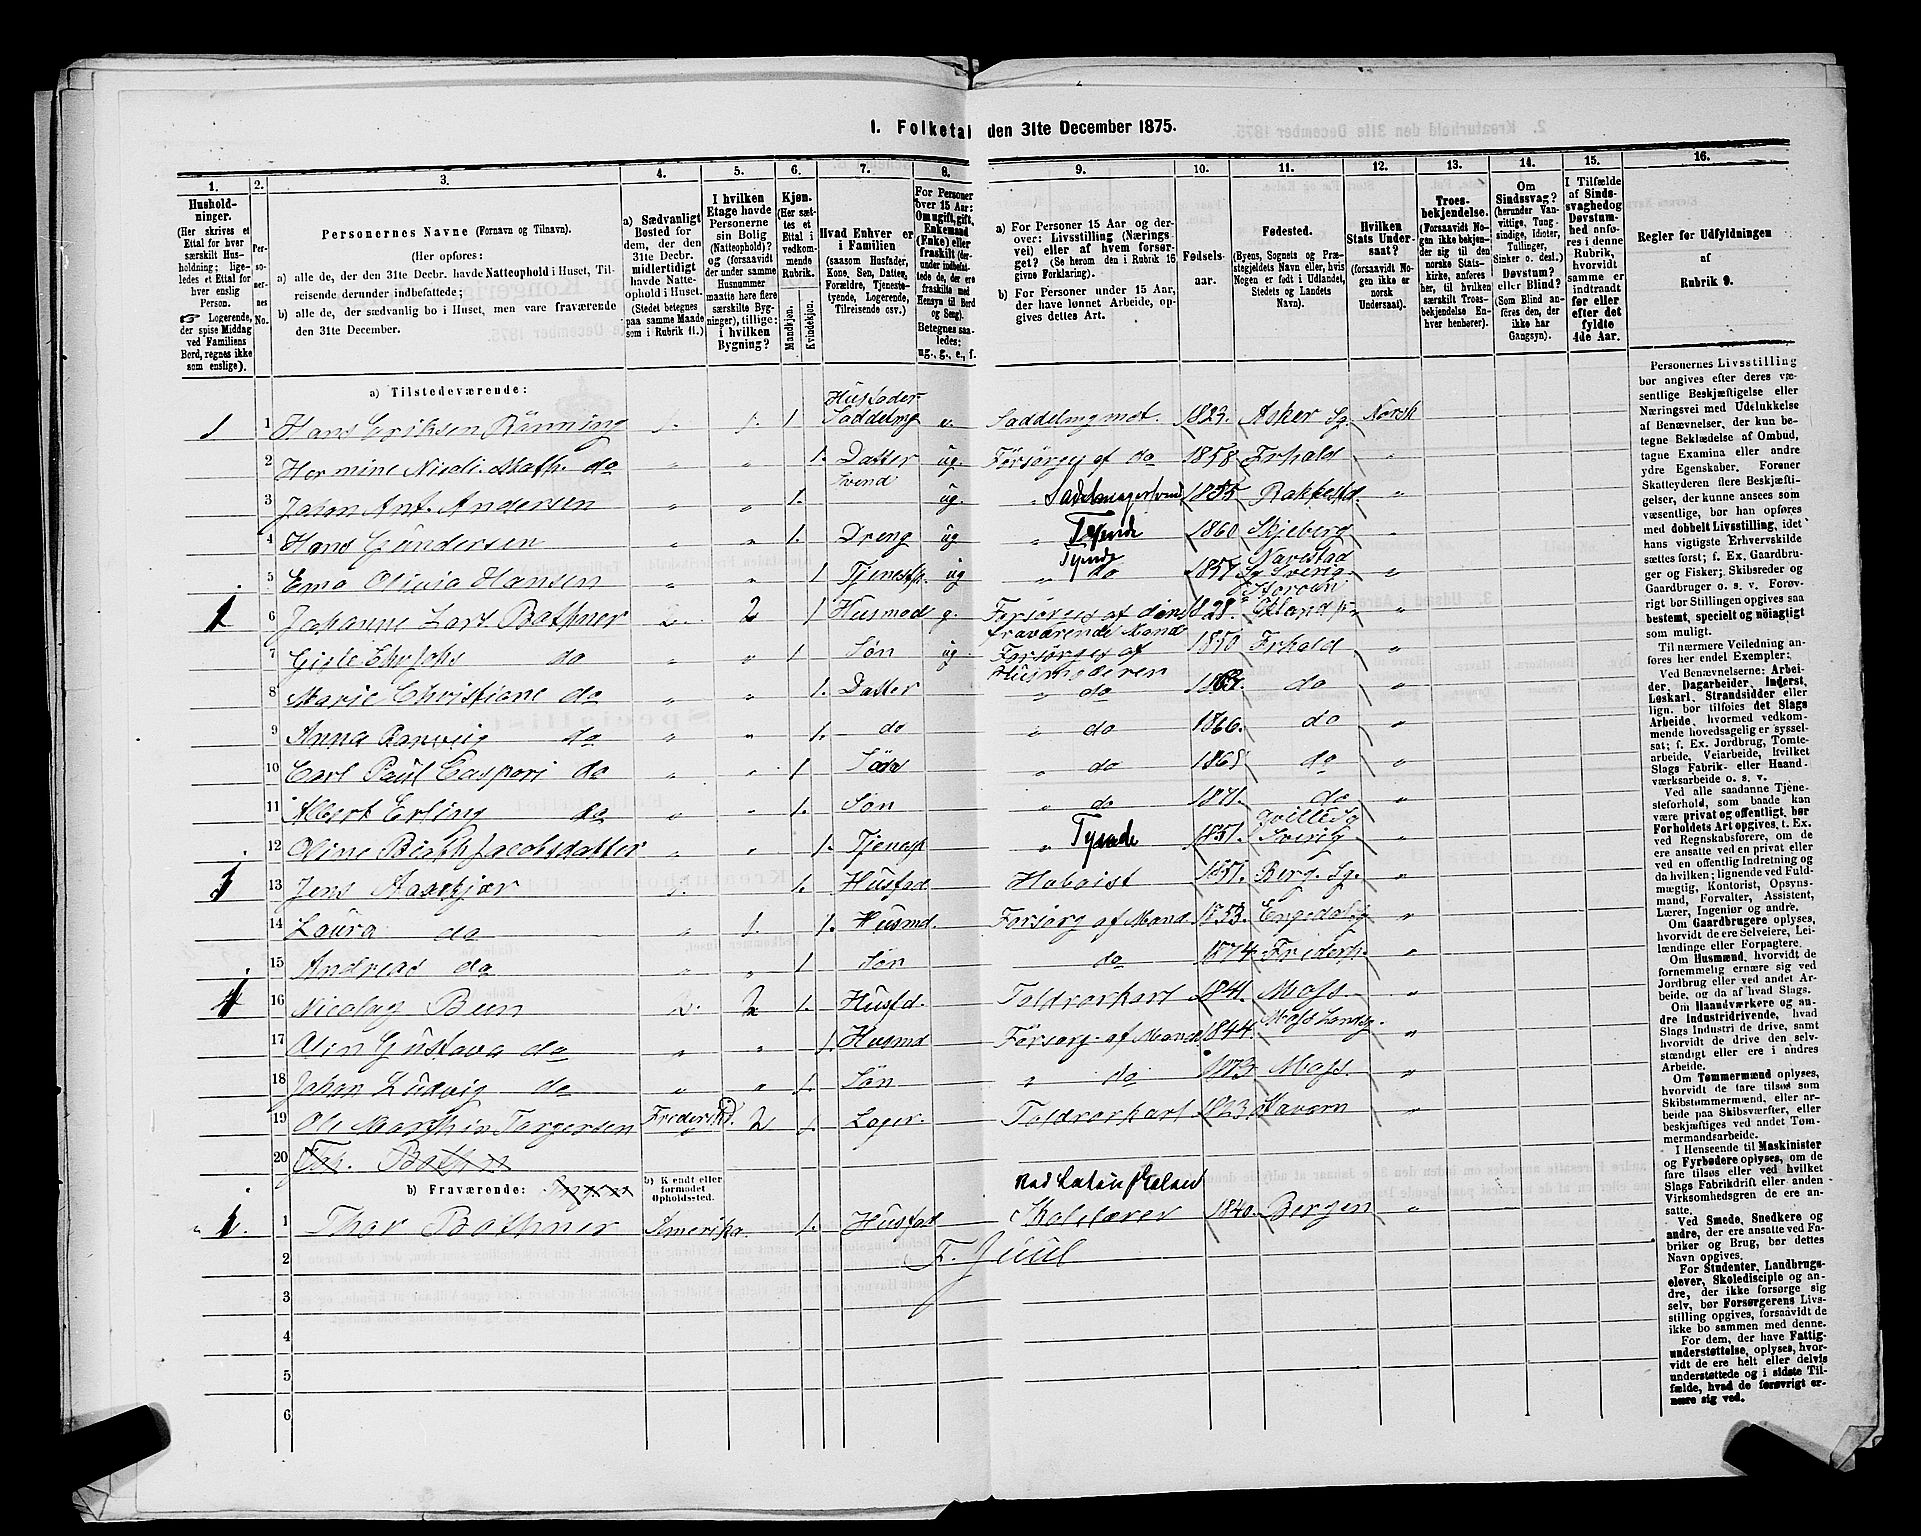 1. Folketal den 31te December 1875.
1. 2. 3. 4. 5. 6. 7. 8. 9. 10. 11. 12. 13. 14. 15. 16.
Hushold-
ninger.
(Her skrives et
Ettal for hver
særskilt Hus-
holdning; lige-
ledes et Ettal for
hver enslig
Person.
☞ Logerende,
der spise Middag
ved Familiens
Bord, regnes ikke
som enslige).
Per-
so-
ner-
nes
No.
Personernes Navne (Fornavn og Tilnavn).
(Her opføres:
a) alle de, der den 31te Decbr. havde Natteophold i Huset, Til-
reisende derunder indbefattede;
b) alle de, der sædvanlig bo i Huset, men vare fraværende
den 31te December.
a) Sædvanligt
Bosted for
dem, der den
31te Decbr.
midlertidigt
havde Natte-
ophold i Huset
(Stedet betegnes
paa samme Maade
som i Rubrik 11.)
I hvilken
Etage havde
Personerne
sin Bolig
(Natteophold)?
og (forsaavidt
der under samme
Husnummer
maatte høre flere
særskilte Byg-
ninger), tillige:
i hvilken
Bygning?
Kjøn.
(Her sæt-
tes et
Ettal i
vedkom-
mende
Rubrik.
Mandkjøn.
Kvindekjøn.
Hvad Enhver er
i Familien
(saasom Husfader,
Kone, Søn, Datter,
Forældre, Tjeneste-
tyende, Logerende,
Tilreisende osv.)
For Personer
over 15 Aar:
Om ugift, gift,
Enkemand
(Enke) eller
fraskilt (der-
under indbefat-
tede de, der ere
fraskilte med
Hensyn til Bord
og Seng).
Betegnes saa-
ledes:
ug., g., e., f.
a) For Personer 15 Aar og der-
over: Livsstilling (Nærings-
vei) eller af hvem forsør-
get? (Se herom den i Rubrik 16
givne Forklaring).
b) For Personer under 15 Aar,
der have lønnet Arbeide, op-
gives dettes Art.
Fødsels-
aar.
Fødested.
(Byens, Sognets og Præ-
stegjeldets Navn eller, hvis
Nogen er født i Udlandet,
Stedets og Landets
Navn).
Hvilken
Stats Under-
saat?
(forsaavidt No-
gen ikke er
norsk
Undersaat).
Troes-
bekjendelse.
(Forsaavidt No-
gen ikke bekjen-
der sig til den
norske Stats-
kirke, anføres
her, til hvilken
særskilt Troes-
bekjendelse En-
hver henhører).
Om
Sindssvag?
(herunder Van-
vittige, Tung-
sindige, Idioter,
Tullinger,
Sinker o. desl.)
Døvstum?
eller Blind?
(Som Blind an-
føres den, der
ikke har
Gangsyn).
I Tilfælde
af Sinds-
svaghed og
Døvstum-
hed anfø-
res i denne
Rubrik,
hvorvidt
samme er
indtraadt
før eller
efter det
fyldte
4de Aar.
Regler for Udfyldningen
af
Rubrik 9.
a) Tilstedeværende:
Husfader
1 1 Hans Eriksen Rünning 1. 1. 1 Saddelmg e. Saddelmgmst. 1823. Asker Sg. Norsk
2 Hermine Nicoli. Math. do „ „ 1. Datter ug. Førsørges af do 1858 Frhald „
3 Johan Ant. Andersen „ „ 1. Svend ug „ Sadelmagersvend 1855 Rakkestd. „
4 Hans Gundersen „ „ 1. Dreng ug „ Tyende 1860 Skjeberg „
5 Ema Olivia Hansen „ „ 1 Tjenestp. ug „ Tyende do 1857 Navestad Sg Sverig. „
1 6 Johanne Lars Bathner 2. 2 1 Husmod g. Forsørges af dens fraværende Mand 1828. „
7 Gisle do „ „ 1 Søn ug Forsørges af Husmoderen 1850 Frhald „
8 Marie Christiane do „ „ 1. Datter „ do do „
9 Anna Ranveig do „ „ 1. do „ do 1866. do „
10 Carl Paul Caspari do „ „ 1 Søn „ do 1868 do „
11 Albert Erling do „ „ 1. Søn „ do 1871. do „
12 Oline Berth. Jacobsdatter „ „ 1. Tjenesp „ Tyende 1851. Sverig „
13 Jens Aaaskjær 1. Husfad 1851. Berg. Sg. „
14 Laura do „ 1. 1. Husmd. Forsørg af Mand 1853. Engedal Sg „
15 Andreas do „ „ 1 Søn do 1874. Fridersh. „
4 16 Nicolay Been 2. 2 1. Husfd. Toldrorkarl 1841. Moss „
17 Olin Gustava do „ „ 1. Husmd Førsørg. af Mand 1844. Moss Landsg. „
18 Johan Ludvig do „ „ 1. Søn „ do 1873. Moss. „
19 Ole Marthin Torgersen Frederiksd. 2 1. Loger. Toldrorkarl „
20
b) Fraværende:
b) Kjendt eller
formodet
Opholdssted.
1 1 Thor Bathner Amerika. 1. Husfad Skolelærer 1840. Bergen „
2 F. Juul
3
4
5
6
Personernes Livsstilling
bør angives efter deres væ-
sentlige Beskjæftigelse eller
Næringsvei med Udelukkelse
af Benævnelser, der kun be-
tegne Beklædelse af Ombud,
tagne Examina eller andre
ydre Egenskaber. Forener
Skatteyderen flere Beskjæfti-
gelser, der kunne ansees som
væsentlige, bør han opføres
med dobbelt Livsstilling, idet
hans vigtigste Erhvervskilde
sættes først; f. Ex. Gaardbru-
ger og Fisker; Skibsreder og
Gaardbruger o. s. v. Forøv-
rigt bør Stillingen opgives saa
bestemt, specielt og nøiagtigt
som muligt.
Til nærmere Veiledning an-
føres her endel Exempler:
Ved Benævnelserne: Arbei-
der, Dagarbeider, Inderst,
Løskarl, Strandsidder eller
lign. bør tilføies det Slags
Arbeide, hvormed vedkom-
mende hovedsagelig er syssel-
sat; f. Ex. Jordbrug, Tomte-
arbeide, Veiarbeide, hvilket
Slags Fabrik- eller Haand-
værksarbeide o. s. v.
Ved alle saadanne Tjene-
steforhold, som baade kan
være privat og offentligt, bør
Forholdets Art opgives, t. Ex.
ved Regnskabsførere, om de
ere ansatte ved en privat eller
ved en offentlig Indretning og
da hvilken; lignende ved Fuld-
mægtig, Kontorist, Opsyns-
mand, Forvalter, Assistent,
Lærer, Ingeniør og andre.
Om Gaardbrugere oplyses,
hvorvidt de ere Selveiere, Lei-
lændinge eller Forpagtere.
Om Husmænd, hvorvidt de
fornemmelig ernære sig ved
Jordbrug eller ved andet Ar-
beide, og da af hvad Slags.
Om Haandværkere og an-
dre Industridrivende, hvad
Slags Industri de drive, samt
hvorvidt de drive den selv-
stændigt eller ere i andres
Arbeide.
Om Tømmermænd oplyses,
hvorvidt de fare tilsøs som
Skibstømmermænd, eller ar-
beide paa Skibsværfter, eller
beskjæftiges ved andet Tøm-
mermandsarbeide.
I Henseende til Maskinister
og Fyrbødere oplyses, om de
fare tilsøs eller ved hvilket
Slags Fabrikdrift eller anden
Virksomhedsgren de ere an-
satte.
Ved Smede, Snedkere og
andre, der ere ansatte ved Fa-
briker og Brug, bør dettes
Navn opgives.
For Studenter, Landbrugs-
elever, Skoledisciple og an-
dre, der ikke forsørge sig
selv, bør Forsørgerens Livs-
stilling opgives, forsaavidt de
ikke bo sammen med denne.
For dem, der have Fattig-
understøttelse, oplyses, hvor-
vidt de ere helt eller delvis
understøttede og i sidste Til-
fælde, hvad de forøvrigt er-
nære sig ved.